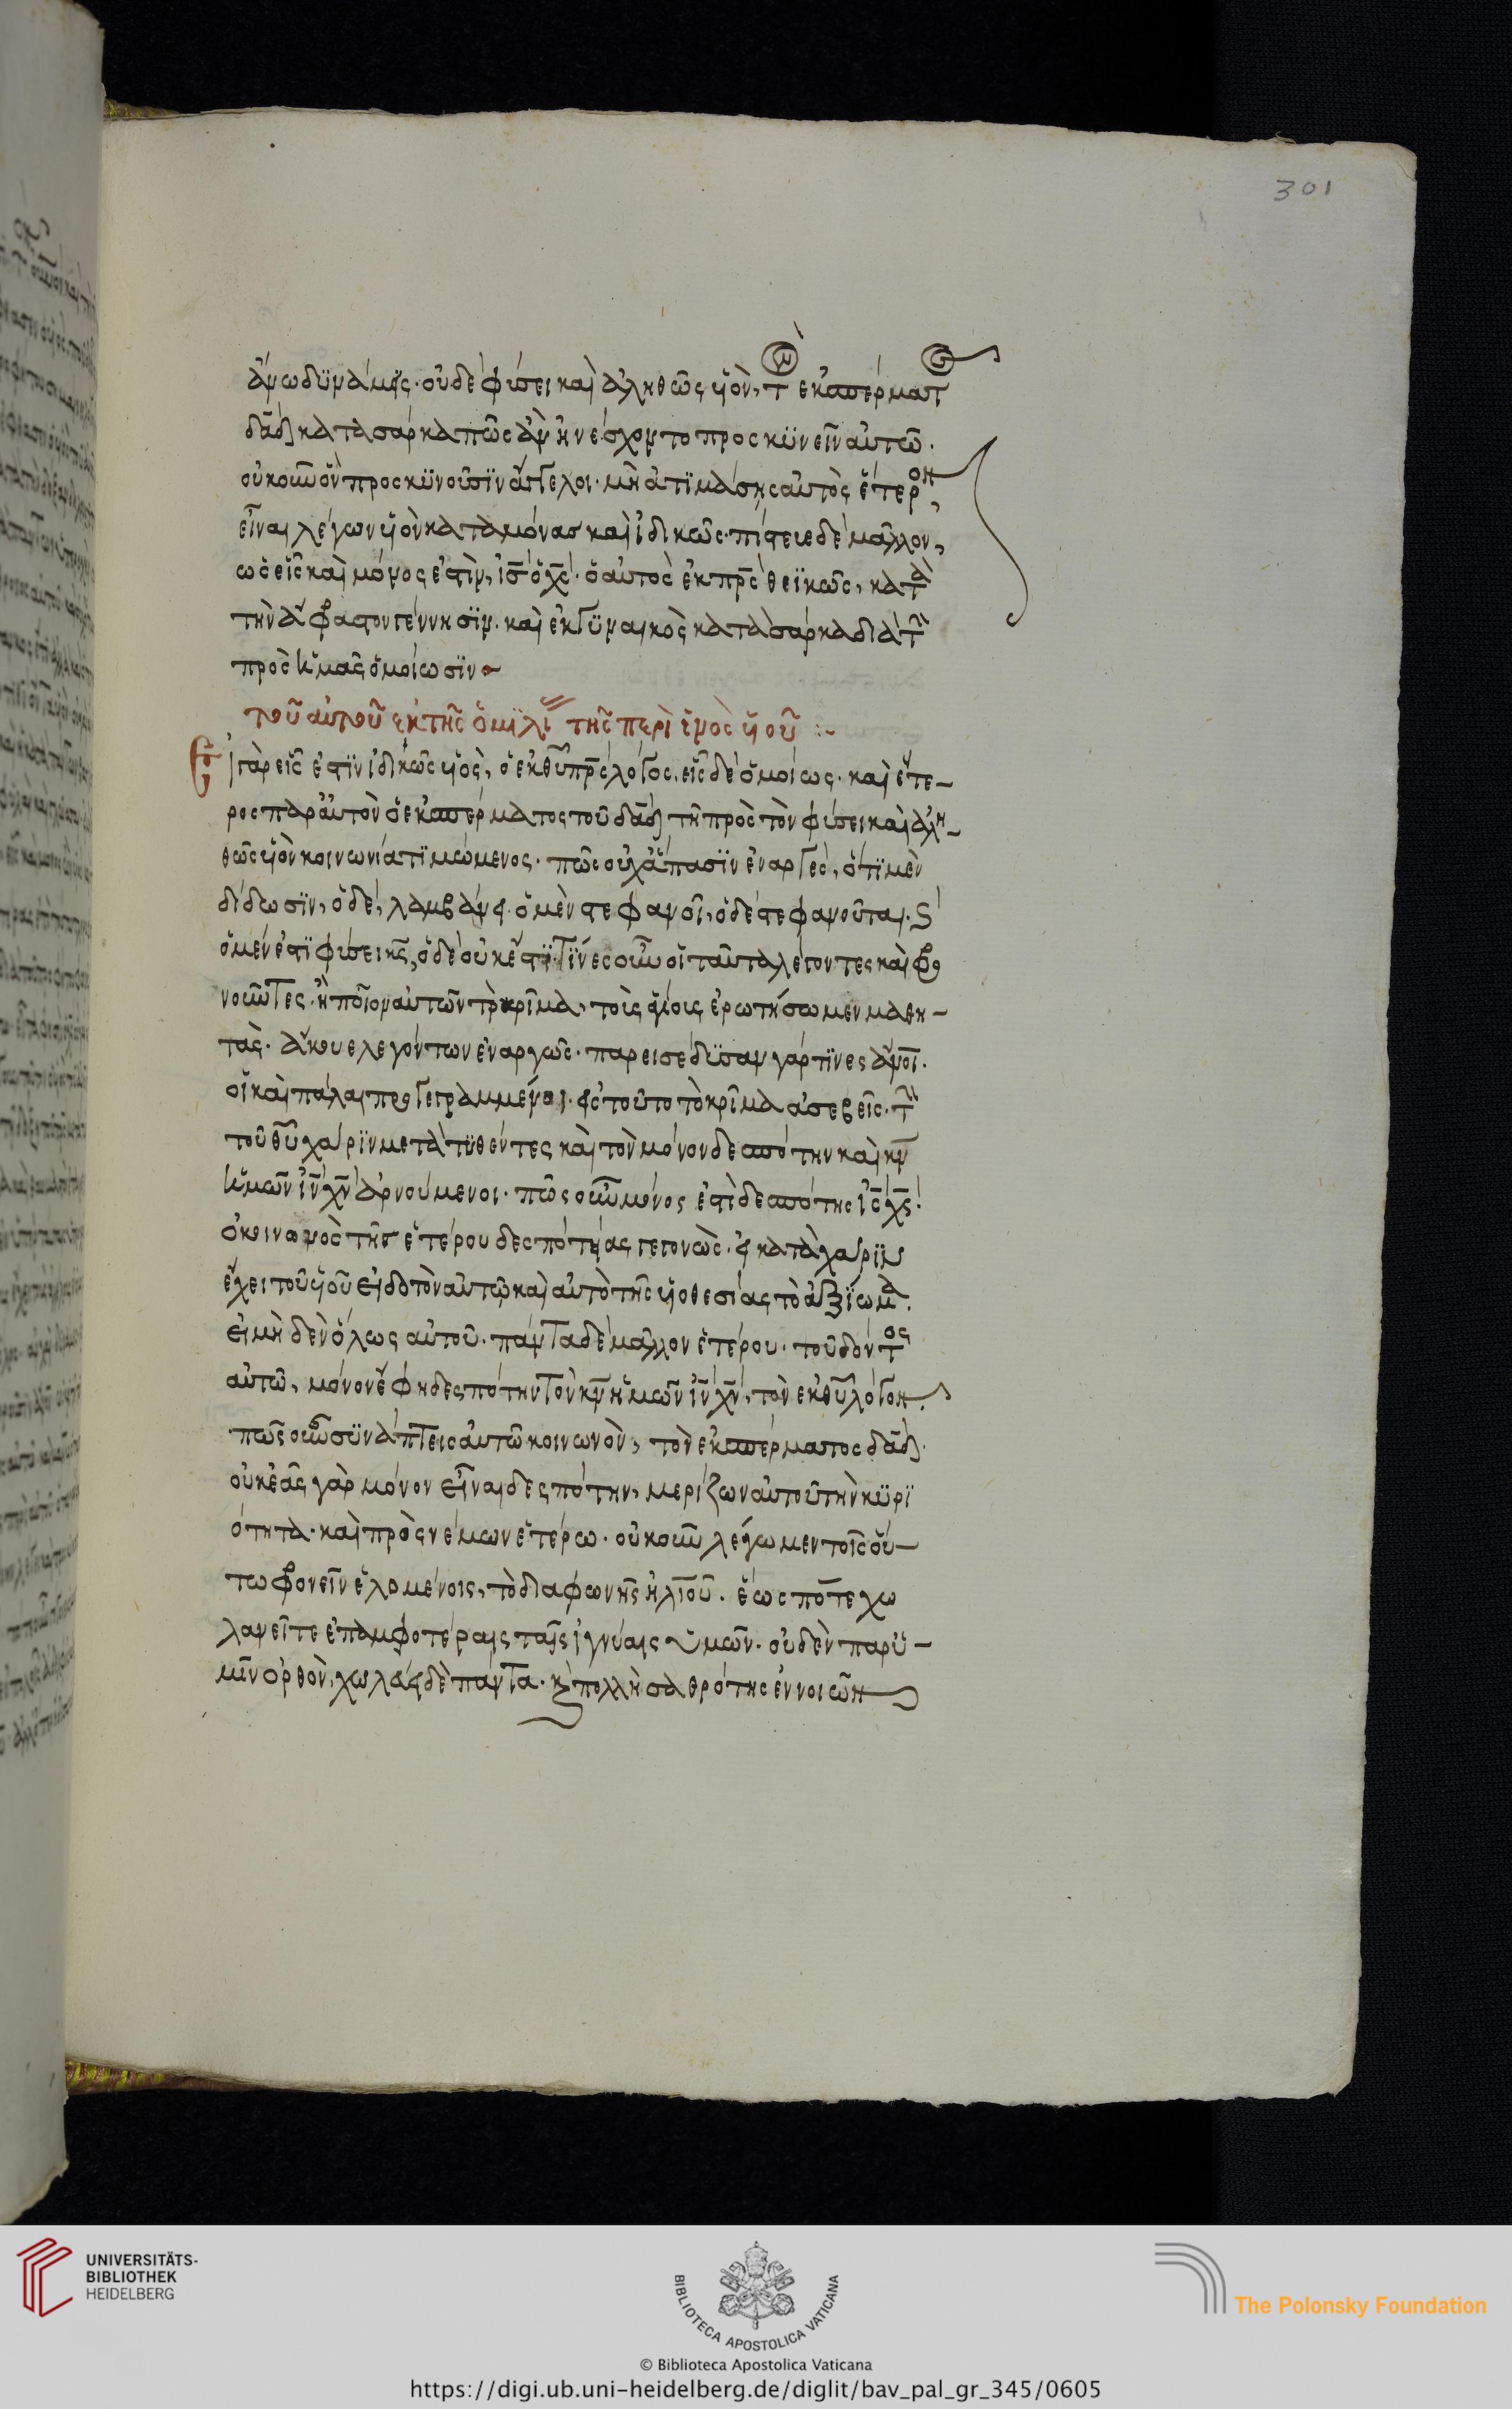 301
ἄνω δϋνάμϊς· οὐδὲ φύσει καὶ ἀληθῶς υἱὸν, τὸν ἐκ σπέρματος
δαδ κατὰ σάρκα πῶς ἂν ἠνέσχοντο προσκϋνεῖν αὐτῶ·
οὐκοῦν ὃν προσκϋνοῦσϊν ἄγγελοι· μὴ ἀτϊμάσης αὐτὸς ἕτερον,
εἶναι λέγων υἱὸν καταμόνας καὶ ἰδικῶς· πίστευε δὲ μᾶλλον,
ὡς εἷς καὶ μόνος ἐστὶν, ἰς ὁ χς· ὁ αὐτὸς ἐκ πρς θεϊκῶς, κατὰ
τὴν ἄφραστον γέννησϊν· καὶ ἐκ γϋναικὸς κατὰ σάρκα διὰ τὴν
πρὸς ἡμᾶς ὁμοίωσϊν
τοῦ αὐτοῦ ἐκ τῆς ὁμϊλί τῆς περὶ ἑνὸς υἱοῦ :-
Εἰ γὰρ εἷς ἐστϊν ἰδικῶς υἱὸς, ὁ ἐκ θυ πρς λόγος, εἷς δὲ ὁμοίως· καὶ ἕτε-
ρος παρ' αὐτὸν ὁ ἐκ σπέρματος τοῦ δαδ τῆ πρὸς τὸν φύσει καὶ ἀλη-
θῶς υἱὸν κοινωνία τϊμώμενος· πῶς οὐχ ἅπασϊν ἐναργὲς, ὅτϊ μὲν
δίδωσϊν, ὁ δὲ, λαμβάνει· ὁ μὲν στεφανοῖ, ὁ δὲ στεφανοῦται· καὶ
ὁ μὲν ἐστϊ φύσει κς, ὁ δὲ οὐκ ἔστϊ· τϊνες οὖν οἱ ταῦτα λέγοντες καὶ φρο
νοῦντες· ἢ ποῖον αὐτῶν τὸ κρῖμα, τοὺς ἁγίους ἐρωτήσωμεν μαθη-
τὰς· ἄκουε λεγόντων ἐναργῶς· παρεισέδϋσαν γάρ τϊνες ἄνοι·
οἱ καὶ πάλαι προγεγραμμένοι· εἰς τοῦτο τὸ κρῖμα ἀσεβεῖς· τὴν
τοῦ θυ χάρϊν μετατϊθέντες καὶ τὸν μόνον δεσπότην καὶ κν
ἡμῶν ἰν χν ἀρνούμενοι· πῶς οὖν μόνος ἐστὶ δεσπότης ἰς χς·
ὁ κοινωνὸς τῆς ἑτέρου δεσποτείας γεγονὼς· εἰ κατὰ χάρϊν
ἔχει τοῦ υἱοῦ
εἰ μηδὲν ὅλως αὐτοῦ· πάντα δὲ μᾶλλον ἑτέρου· τοῦ δόντος
αὐτῶ, μόνον ἔφη δεσπότην τὸν κν ἡμῶν ἰν χν, τὸν ἐκ θυ λόγον·
πῶς οὖν σϋνάπτεις αὐτῶ κοινωνὸν, τὸν ἐκ σπέρματος δαδ·
οὐκ ἐᾶς γὰρ μόνον εἶναι δεσπότην, μερίζων αὐτοῦ τὴν κϋρϊ
ότητα· καὶ προσνέμων ἑτέρω· οὐκοῦν λέγωμεν τοῖς οὕ-
τω φρονεῖν ἑλομένοις, τὸ διὰ φωνῆς ἠλιοῦ· ἕως πότε χω
λανεῖτε ἐπ' ἀμφοτέραις ταῖς ἰγνύαις ὑμῶν· οὐδὲν παρ' ὑ-
μῖν ὀρθὸν, χωλὰ δὲ πάντα· καὶ πολλὴ σαθρότης ἐννοιῶν
UNIVERSITÄTS-
BIBLIOTHEK
HEIDELBERG
BIBLIOTECA APOSTOLICA VATICANA
The Polonsky Foundation
© Biblioteca Apostolica Vaticana
https://digi.ub.uni-heidelberg.de/diglit/bav_pal_gr_345/0605